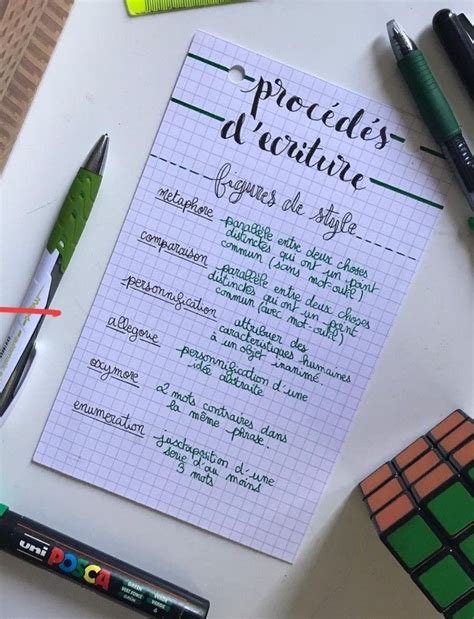 procédés
d'ecriture
figures de style
metaphore parallèle entre deux choses
distinctes qui ont un point
commun (sans mot-outil)
comparaison parallèle entre deux choses
distinctes qui ont un point
commun (avec mot-outil)
personnification attribuer des
caracteristiques humaines
à un objet inanimé
allegorie personnification d'une
idée abstraite
oxymore 2 mots contraires dans
la même phrase.
enumeration juxtaposition d'une
serie d'au moins
3 mots
uni POSCA